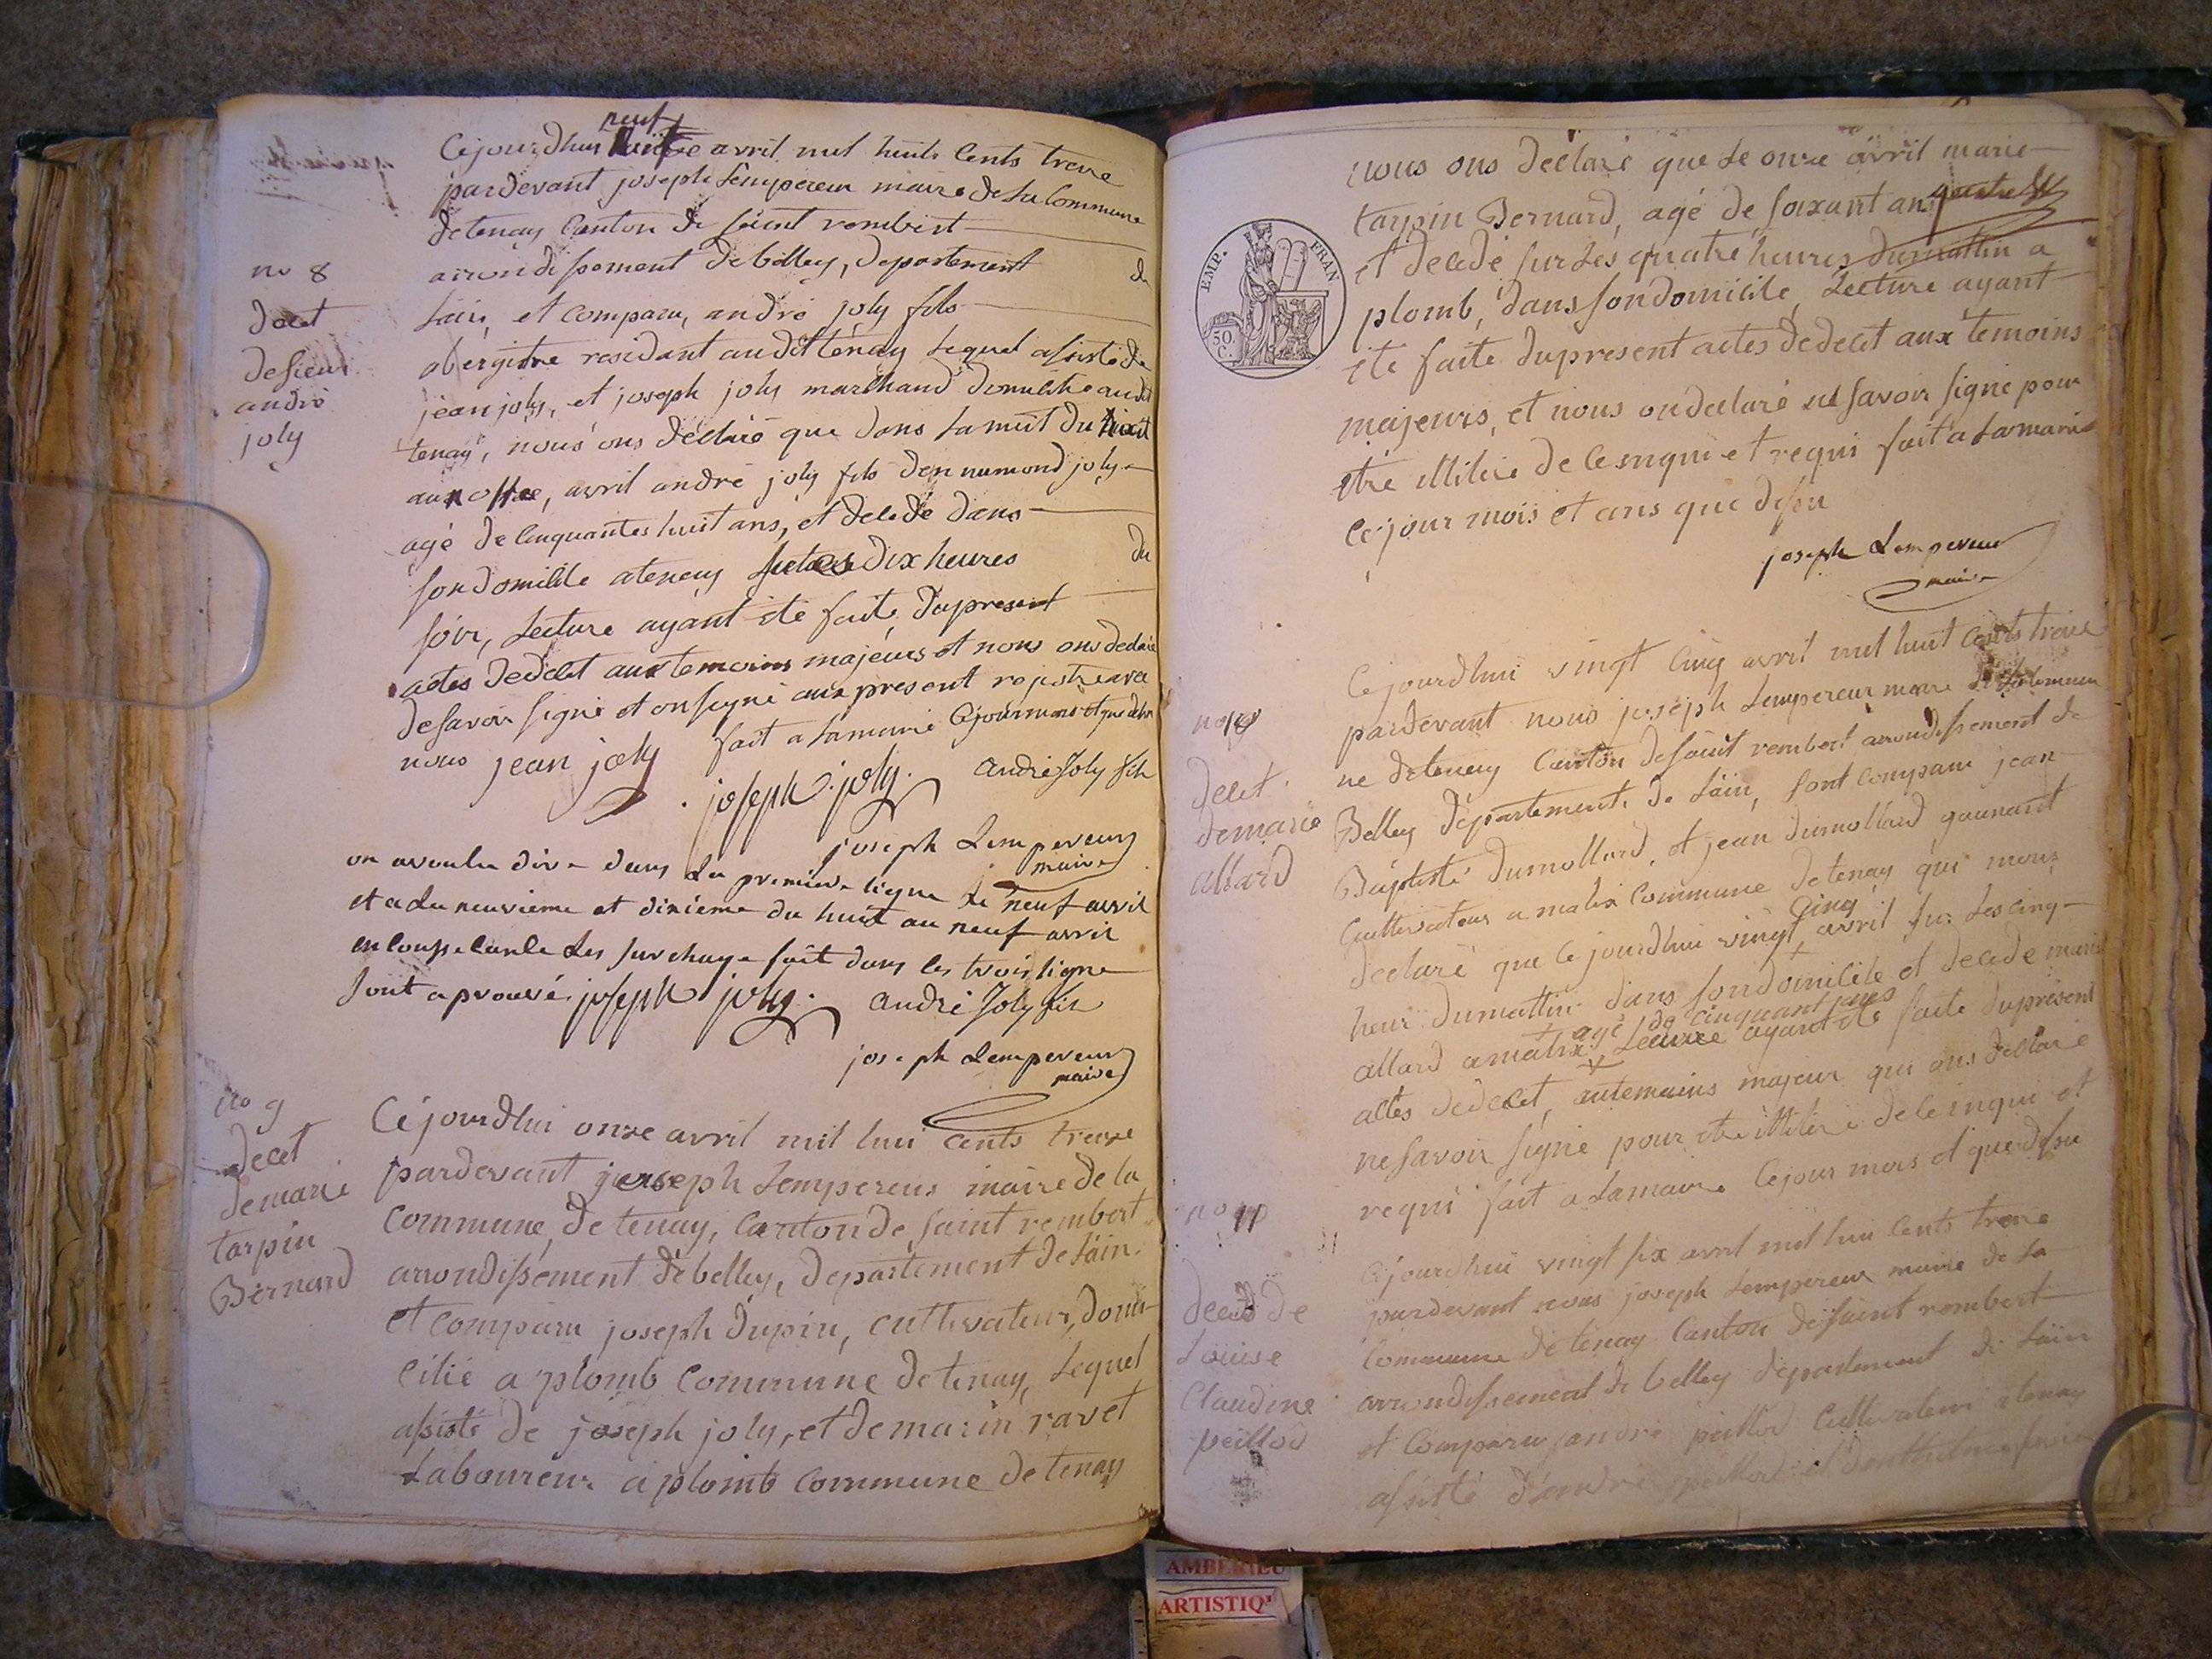 neuf
Cejourdhuy avril mil huits Cents treze
pardevant joseph Lempereur maire de La Commune
detenay Canton de saint rembert
arrondissement de belley, departement du
Lain, et comparu, andré joly fils
obergitre residant audit tenay Lequel assisté de
jean joly, et joseph joly marchand domicilié audit
tenay, nous ons déclaré que dans Lanuit du huit
au avril andré joly fils den numond joly
agé de Cinquantes huit ans, et decedé dans
son domicile atenay dix heures du
soir, Lecture ayant été faite dupresent
actes dedecet aux temoins majeurs et nous ons declaré
de savoir signé et on signé aux present rejistre avec
nous fait a Lamarie Cejour mois et que desu
jean joly
joseph joly
andré Joly fils
joseph Lempereur
maire
no 8
decet
desieur
andré
joly
on avoulu dire dans La premiere ligne Le neuf avril
et a La neuvieme et dixieme du huit au neuf avril
Les surchage fait dans les trois ligne
sont aprouvé. joseph joly. andré Joly fils
joseph Lempereur
maire
no 9
decet
demarie
tarpin
Bernard
Céjourdhui onze avril mil hui cents treize
pardevant joseph Lempereur maire de la
commune, de tenay, Canton de saint rembert
arrondissement de belley, departement de Lain.
et comparu joseph dupin, cultivateur, domi-
cilié a plomb Commune de tenay, Lequel
assisté de joseph joly, et demarin ravet
Laboureur a plomb Commune de tenay
EMP. FRAN
50.
C.
nous ons déclaré que Le onze avril marie
tarpin Bernard, agé de soixant an
et decedé sur Les quatre heures dumattin a
plomb, dans sondomicile, Lecture ayant
été faite dupresent actes dedecet aux temoins
majeurs, et nous on declaré ne savoir signé pour
être illitere de cenquis et requi fait a Lamarie
Cejour mois et ans que desu
joseph Lempereur
maire
no 10
decet
demarie
allard
Cejourdhui vingt Cinq avril mil huit cents treize
pardevant nous joseph Lempereur maire de La Commu
ne detenay Canton desaint rembert, arrondissement de
Belley département de Lain, sont comparu jean
Baptiste dumollard, et jean dumollard
Cultivateur a malix Commune detenay qui nous
cinq
declaré que Cejourdhui vingt avril sur Les cinq
heur dumattin dans sondomicile et decedé marie
agé de cinquant ans
allard amalix Lecture ayant été faite dupresent
actes dedecet, autemoins majeur qui ons declaré
ne savoir signé pour être illitere de ce inqui et
requi fait a Lamairie Cejour mois et que desu
no 11
decet de
Louise
Claudine
peillod
Cejourdhui vingt six avril mil hui Cents treze
pardevant nous joseph Lempereur maire de La
Commune de tenay Canton de saint rembert
arrondissement de belley departement de Lain
et Comparu andré peillod Cultivateur atenay
assisté dandré peillod et
AMBERIEU
ARTISTIQ'